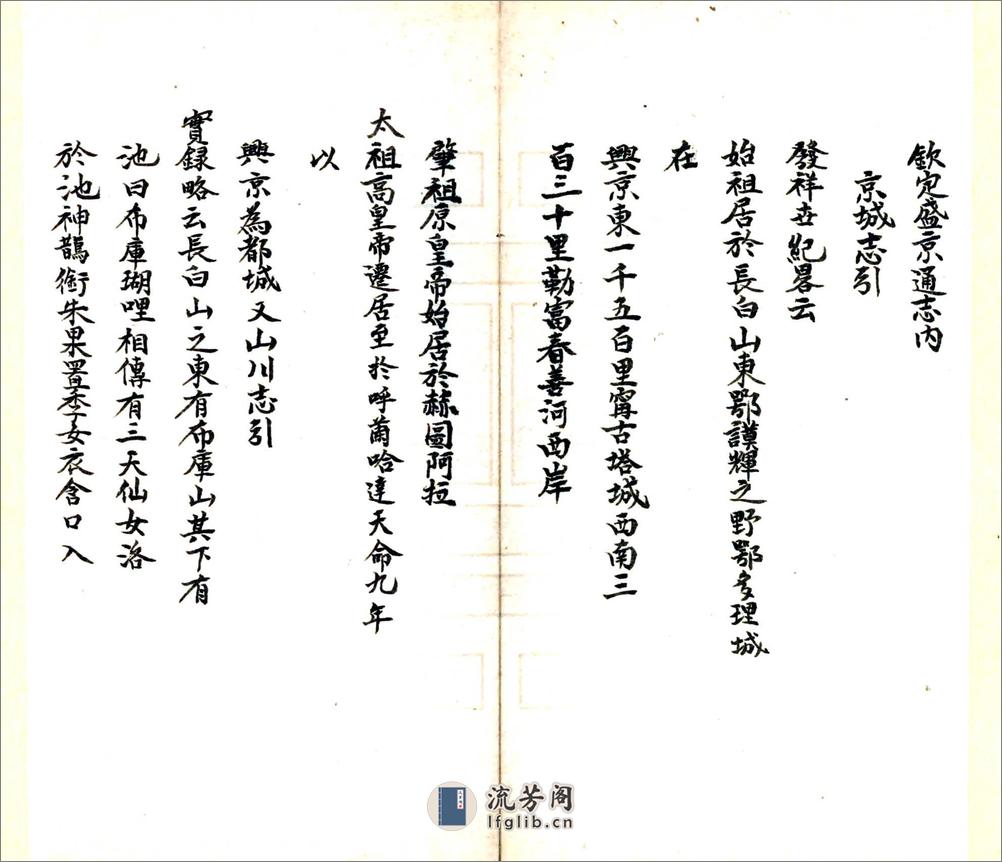 欽定盛京通志內
京城志引
發祥世紀畧云
始祖居於長白山東鄂謨輝之野鄂多理城
在
興京東一千五百里甯古塔城西南三
百三十里勒富春善河西岸
肇祖原皇帝始居於赫圖阿拉
太祖高皇帝遷居至於呼蘭哈達天命九年
以
興京為都城又山川志引
實録略云長白山之東有布庫山其下有
池曰布庫瑚哩相傳有三天仙女浴
於池神鵲銜朱果置季女衣含口入
流芳阁
lfglib.cn